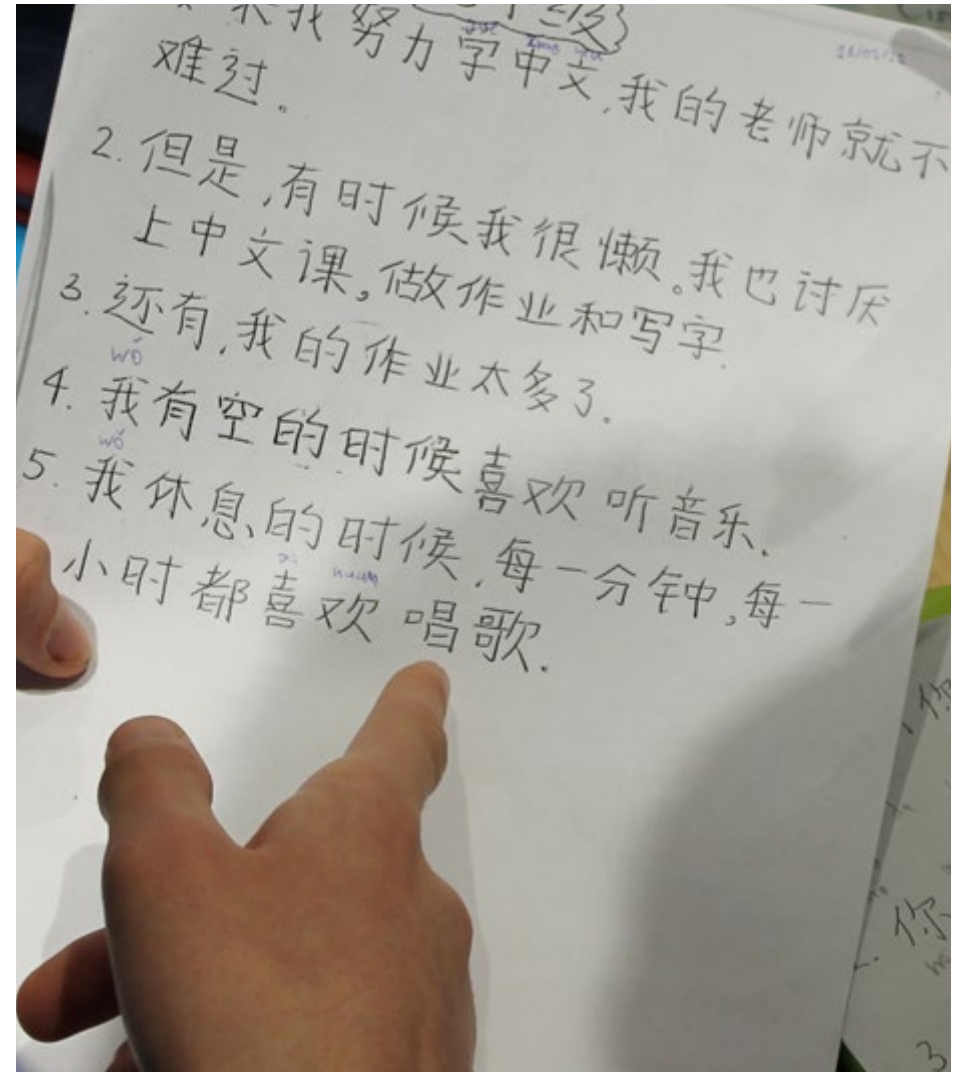 果我努力学中文,我的老师就不
难过。
2. 但是,有时候我很懒。我也讨厌
上中文课。做作业和写字.
3. 还有,我的作业太多了.
wǒ
4. 我有空的时候喜欢听音乐.
wǒ
5. 我休息的时候,每一分钟,每一
xi huan
小时都喜欢唱歌.
你
你
3